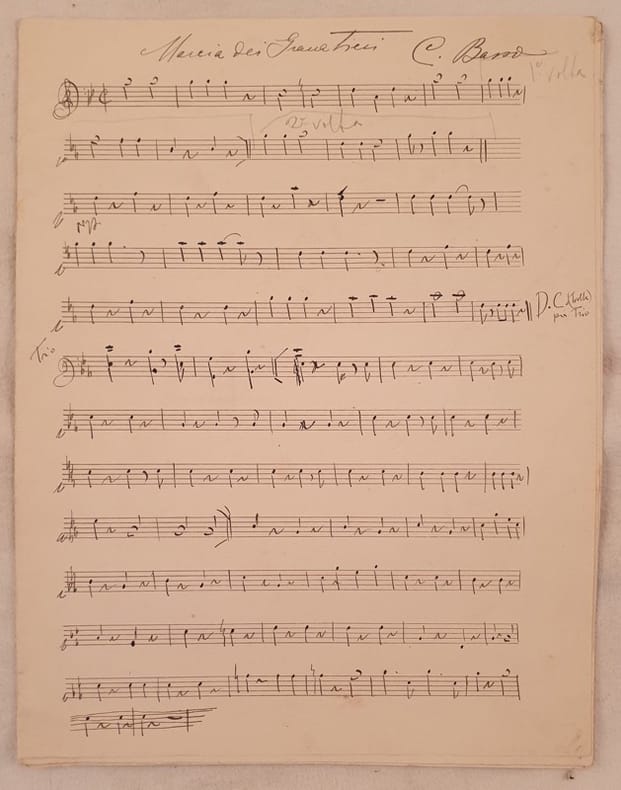 Marcia dei Granatieri C. Basso
1ª volta
2ª volta
D.C.
per Trio
Trio